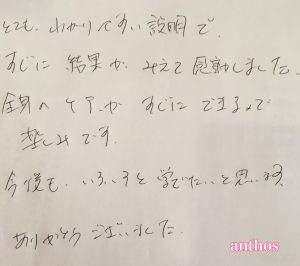 とても、わかりやすい説明で、
すぐに結果がみえて感動しました。
全身のケアがすぐにできるので
楽しみです。
今後も、いろいろと学びたいと思います。
ありがとうございました。
anthos